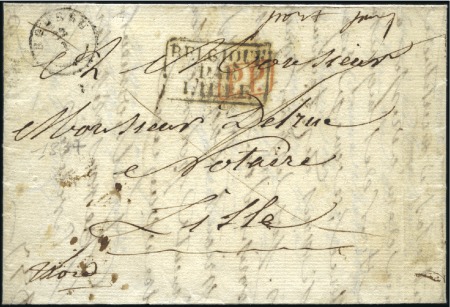 port payé
BELGIQUE
PAR
LILLE
P.P.
A Monsieur
Monsieur Delrue
Notaire
Lille